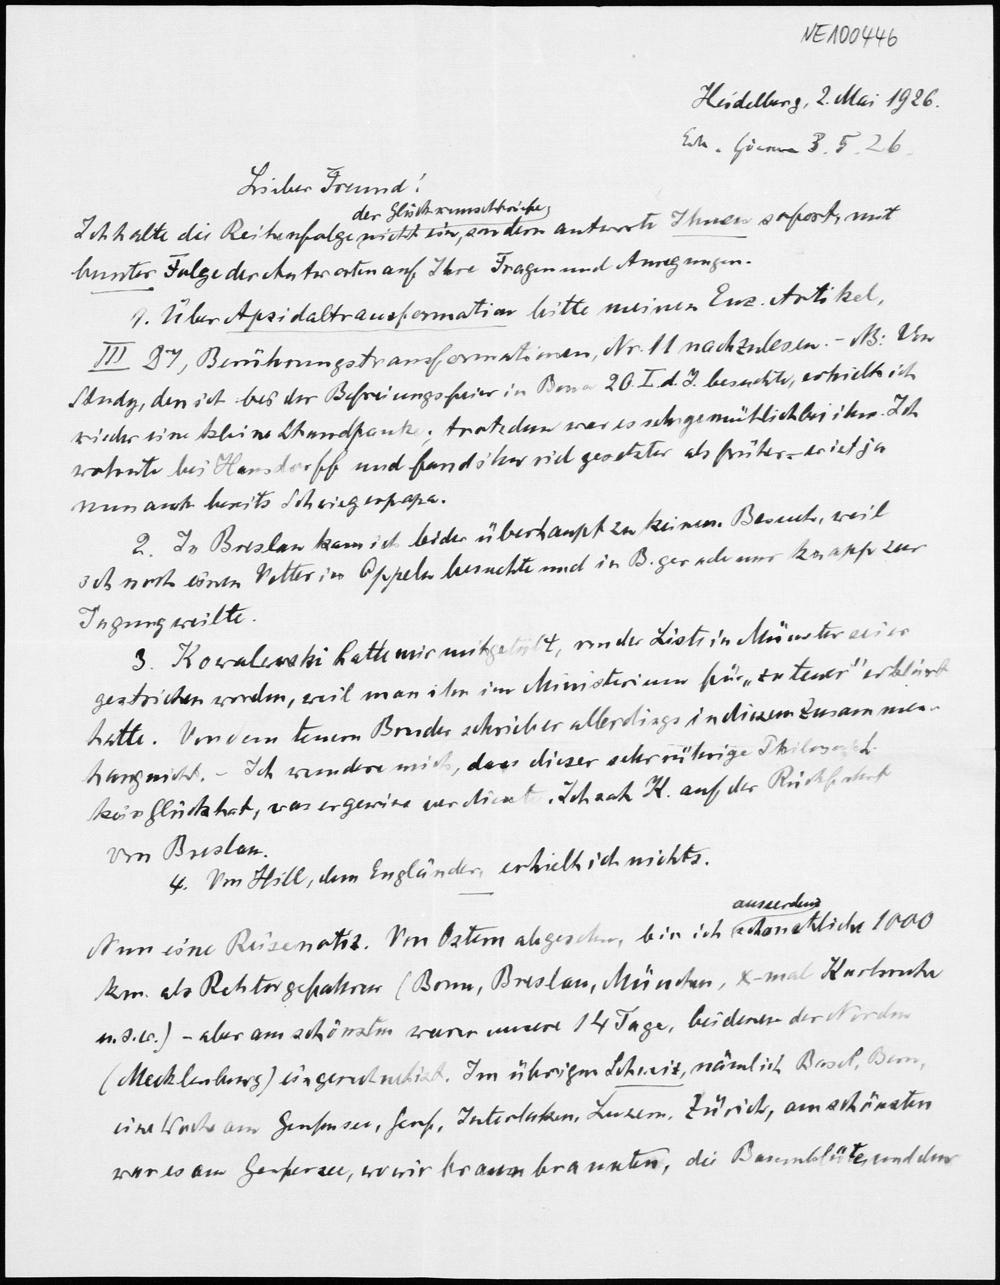 NE100446
Heidelberg, 2. Mai 1926.
3. 5. 26.
Lieber Freund!
der Glückwunschbriefe
Ich halte die Reihenfolge nicht ein, sondern antworte Ihnen sofort, mit
bunter Folge der Antworten auf Ihre Fragen und Anregungen.
1. Über Apsidaltransformation bitte meinen Enz. Artikel,
III D 7, Berührungstransformationen, Nr. 11 nachzulesen. – NB: Von
Study, den ich bei der Befreiungsfeier in Bonn 20. I. d. J. besuchte, erhielt ich
wieder eine kleine Standpauke, trotzdem war es sehr gemütlich bei ihm. Ich
wohnte bei Hausdorff und fand ihn viel gesetzter als früher – er ist ja
nun auch bereits Schwiegerpapa.
2. In Breslau kam ich leider überhaupt zu keinem Besuch, weil
ich noch einen Vetter in Oppeln besuchte und in B. gerade nur knapp zur
Tagung weilte.
3. Kowalewski hatte mir mitgeteilt, von der Liste in Münster sei er
gestrichen worden, weil man ihn im Ministerium für "zu teuer" erklärt
hatte. Von dem teuern Bruder schrieb er allerdings in diesem Zusammen-
hang nicht. – Ich wundere mich, dass dieser sehr rührige Philosoph
kein Glück hat, was er gewiss verdiente. Ich sah K. auf der Rückfahrt
von Breslau.
4. Von Hill, dem Engländer, erhielt ich nichts.
ausserdem
Nun eine Reisenotiz. Von Ostern abgesehen, bin ich etliche 1000
km. als Rektor gefahren (Bonn, Breslau, München, x-mal Karlsruhe
u.s.w.) – aber am schönsten waren unsere 14 Tage, bei denen der Norden
(Mecklenburg) eingerechnet ist. Im übrigen Schweiz, nämlich Basel, Bern,
eine Woche am Genfersee, Genf, Interlaken, Luzern, Zürich, am schönsten
war es am Genfersee, wo wir braun brannten, die Baumblüte und den